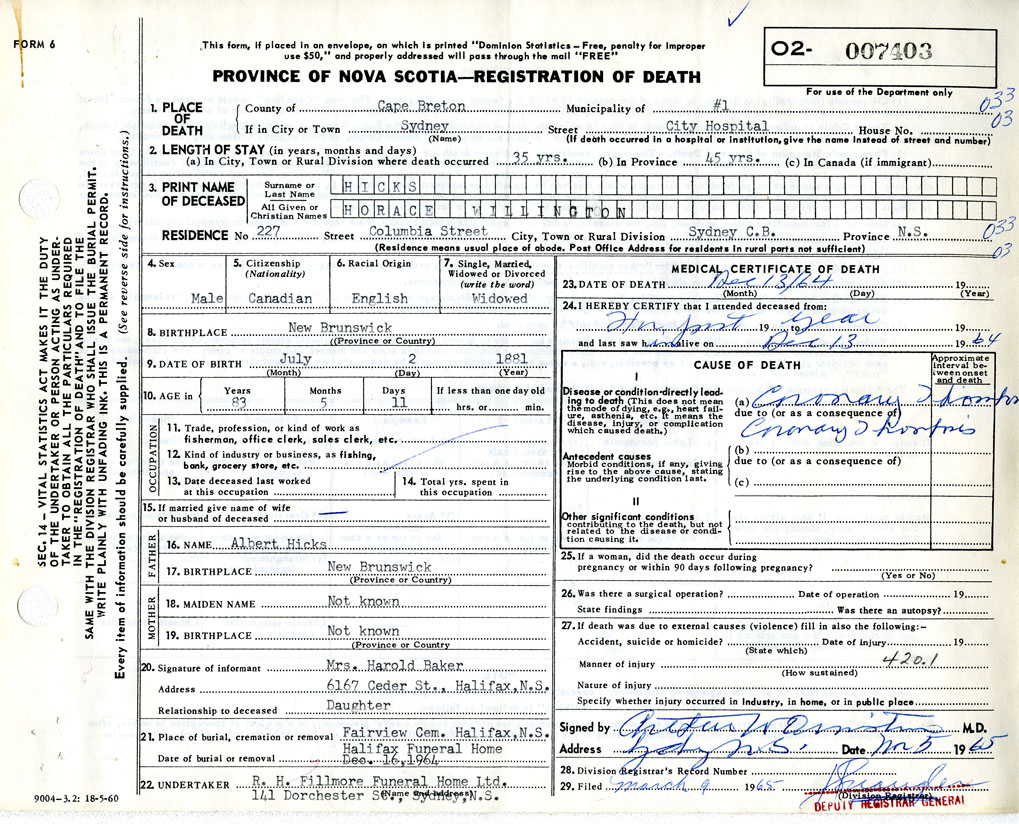 FORM 6
This form, if placed in an envelope, on which is printed "Dominion Statistics – Free, penalty for improper
use $50," and properly addressed will pass through the mail "FREE"
PROVINCE OF NOVA SCOTIA—REGISTRATION OF DEATH
O2- 007403
For use of the Department only
SEC. 14 – VITAL STATISTICS ACT MAKES IT THE DUTY
OF THE UNDERTAKER OR PERSON ACTING AS UNDER-
TAKER TO OBTAIN ALL THE PARTICULARS REQUIRED
IN THE "REGISTRATION OF DEATH" AND TO FILE THE
SAME WITH THE DIVISION REGISTRAR WHO SHALL ISSUE THE BURIAL PERMIT.
WRITE PLAINLY WITH UNFADING INK. THIS IS A PERMANENT RECORD.
Every item of information should be carefully supplied. (See reverse side for instructions.)
1. PLACE OF DEATH
County of Cape Breton Municipality of #1 033
If in City or Town Sydney Street City Hospital House No. 03
(Name) (If death occurred in a hospital or institution, give the name instead of street and number)
2. LENGTH OF STAY (in years, months and days)
(a) In City, Town or Rural Division where death occurred 35 yrs. (b) In Province 45 yrs. (c) In Canada (if immigrant)
3. PRINT NAME OF DECEASED
Surname or Last Name HICKS
All Given or Christian Names HORACE WILLINGTON
RESIDENCE No 227 Street Columbia Street City, Town or Rural Division Sydney C.B. Province N.S. 033
(Residence means usual place of abode. Post Office Address for residents in rural parts not sufficient) 03
4. Sex Male
5. Citizenship (Nationality) Canadian
6. Racial Origin English
7. Single, Married, Widowed or Divorced (write the word) Widowed
8. BIRTHPLACE New Brunswick
(Province or Country)
9. DATE OF BIRTH July 2 1881
(Month) (Day) (Year)
10. AGE in Years 83 Months 5 Days 11 If less than one day old hrs. or min.
OCCUPATION
11. Trade, profession, or kind of work as
fisherman, office clerk, sales clerk, etc.
12. Kind of industry or business, as fishing,
bank, grocery store, etc.
13. Date deceased last worked
at this occupation
14. Total yrs. spent in
this occupation
15. If married give name of wife
or husband of deceased —
FATHER
16. NAME Albert Hicks
17. BIRTHPLACE New Brunswick
(Province or Country)
MOTHER
18. MAIDEN NAME Not known
19. BIRTHPLACE Not known
(Province or Country
20. Signature of informant Mrs. Harold Baker
Address 6167 Ceder St., Halifax,N.S.
Relationship to deceased Daughter
21. Place of burial, cremation or removal Fairview Cem. Halifax,N.S.
Halifax Funeral Home
Date of burial or removal Dec. 16,1964
22. UNDERTAKER R. H. Fillmore Funeral Home Ltd.
(Name and address)
141 Dorchester St., Sydney,N.S.
9004–3.2: 18-5-60
MEDICAL CERTIFICATE OF DEATH
23. DATE OF DEATH Dec 13/64 19
(Month) (Day) (Year)
24. I HEREBY CERTIFY that I attended deceased from:
For past 19 to year 19
and last saw him alive on Dec 13 1964
CAUSE OF DEATH
Approximate interval be-tween onset and death
I
Disease or condition directly lead-
ing to death (This does not mean
the mode of dying, e.g., heart fail-
ure, asthenia, etc. It means the
disease, injury, or complication
which caused death.)
(a) Coronary
due to (or as a consequence of)
Coronary
Antecedent causes
Morbid conditions, if any, giving
rise to the above cause, stating
the underlying condition last.
(b)
due to (or as a consequence of)
(c)
II
Other significant conditions
contributing to the death, but not
related to the disease or condi-
tion causing it.
25. If a woman, did the death occur during
pregnancy or within 90 days following pregnancy?
(Yes or No)
26. Was there a surgical operation? Date of operation 19
State findings Was there an autopsy?
27. If death was due to external causes (violence) fill in also the following:–
Accident, suicide or homicide? Date of injury 19
(State which)
Manner of injury 420.1
(How sustained)
Nature of injury
Specify whether injury occurred in industry, in home, or in public place
Signed by M.D.
Address Sydney N.S. Date 5 1965
28. Division Registrar's Record Number
29. Filed March 9 1965
(Division Registrar)
DEPUTY REGISTRAR GENERAL